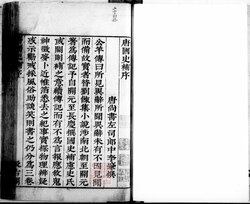 唐國史補序
唐尚書左司郎中李肇撰
公羊傳曰所見異辭所聞異辭未有不因見聞
而備故實者昔劉餗集小說涉南北朝至開元
著為傳記予自開元至長慶撰國史補慮史氏
或闕則補之意續傳記而有不為言報應敘鬼
神徵夢卜近帷箔悉去之紀事實探物理辨疑
惑示勸戒採風俗助談笑則書之仍分為三卷